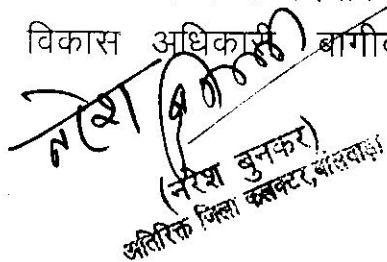 विकास अधिकारी बागीद
नरेश
(नरेश बुनकर)
अतिरिक्त जिला कलक्टर, बांसवाड़ा